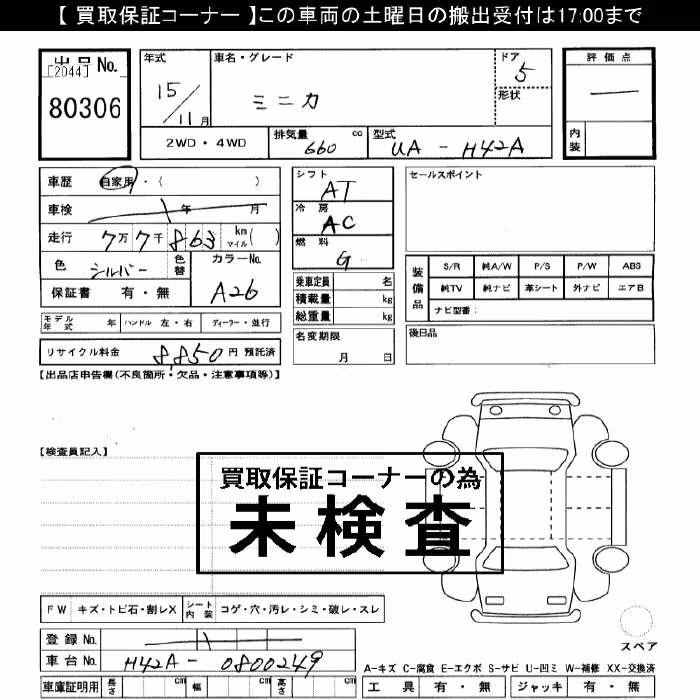 【 買取保証コーナー 】この車両の土曜日の搬出受付は17:00まで
出品 No.
[2044]
80306
年式
15/11月
車名・グレード
ミニカ
ドア
5
形状
評価点
―
内装
2WD・4WD
排気量 660 cc
型式 UA - H42A
車歴 自家用・( )
車検 年 月
走行 7万7千863 km マイル( )
色 シルバー 色替
カラーNo. A26
保証書 有・無
モデル年式 年 ハンドル 左・右 ディーラー・並行
リサイクル料金 8,850円 預託済
シフト AT
冷房 AC
燃料 G
乗車定員 名
積載量 kg
総重量 kg
名変期限
月 日
セールスポイント
装備品
S/R 純A/W P/S P/W ABS
純TV 純ナビ 革シート 外ナビ エアB
ナビ型番:
後日品
【出品店申告欄(不良箇所・欠品・注意事項等)】
【検査員記入】
買取保証コーナーの為
未検査
FW キズ・トビ石・割レX シート内装 コゲ・穴・汚レ・シミ・破レ・スレ
登録 No.
車台 No. H42A - 0800249
車庫証明用 長さ cm 幅 cm 高さ cm
スペア
A-キズ C-腐食 E-エクボ S-サビ U-凹ミ W-補修 XX-交換済
工具 有・無 ジャッキ 有・無